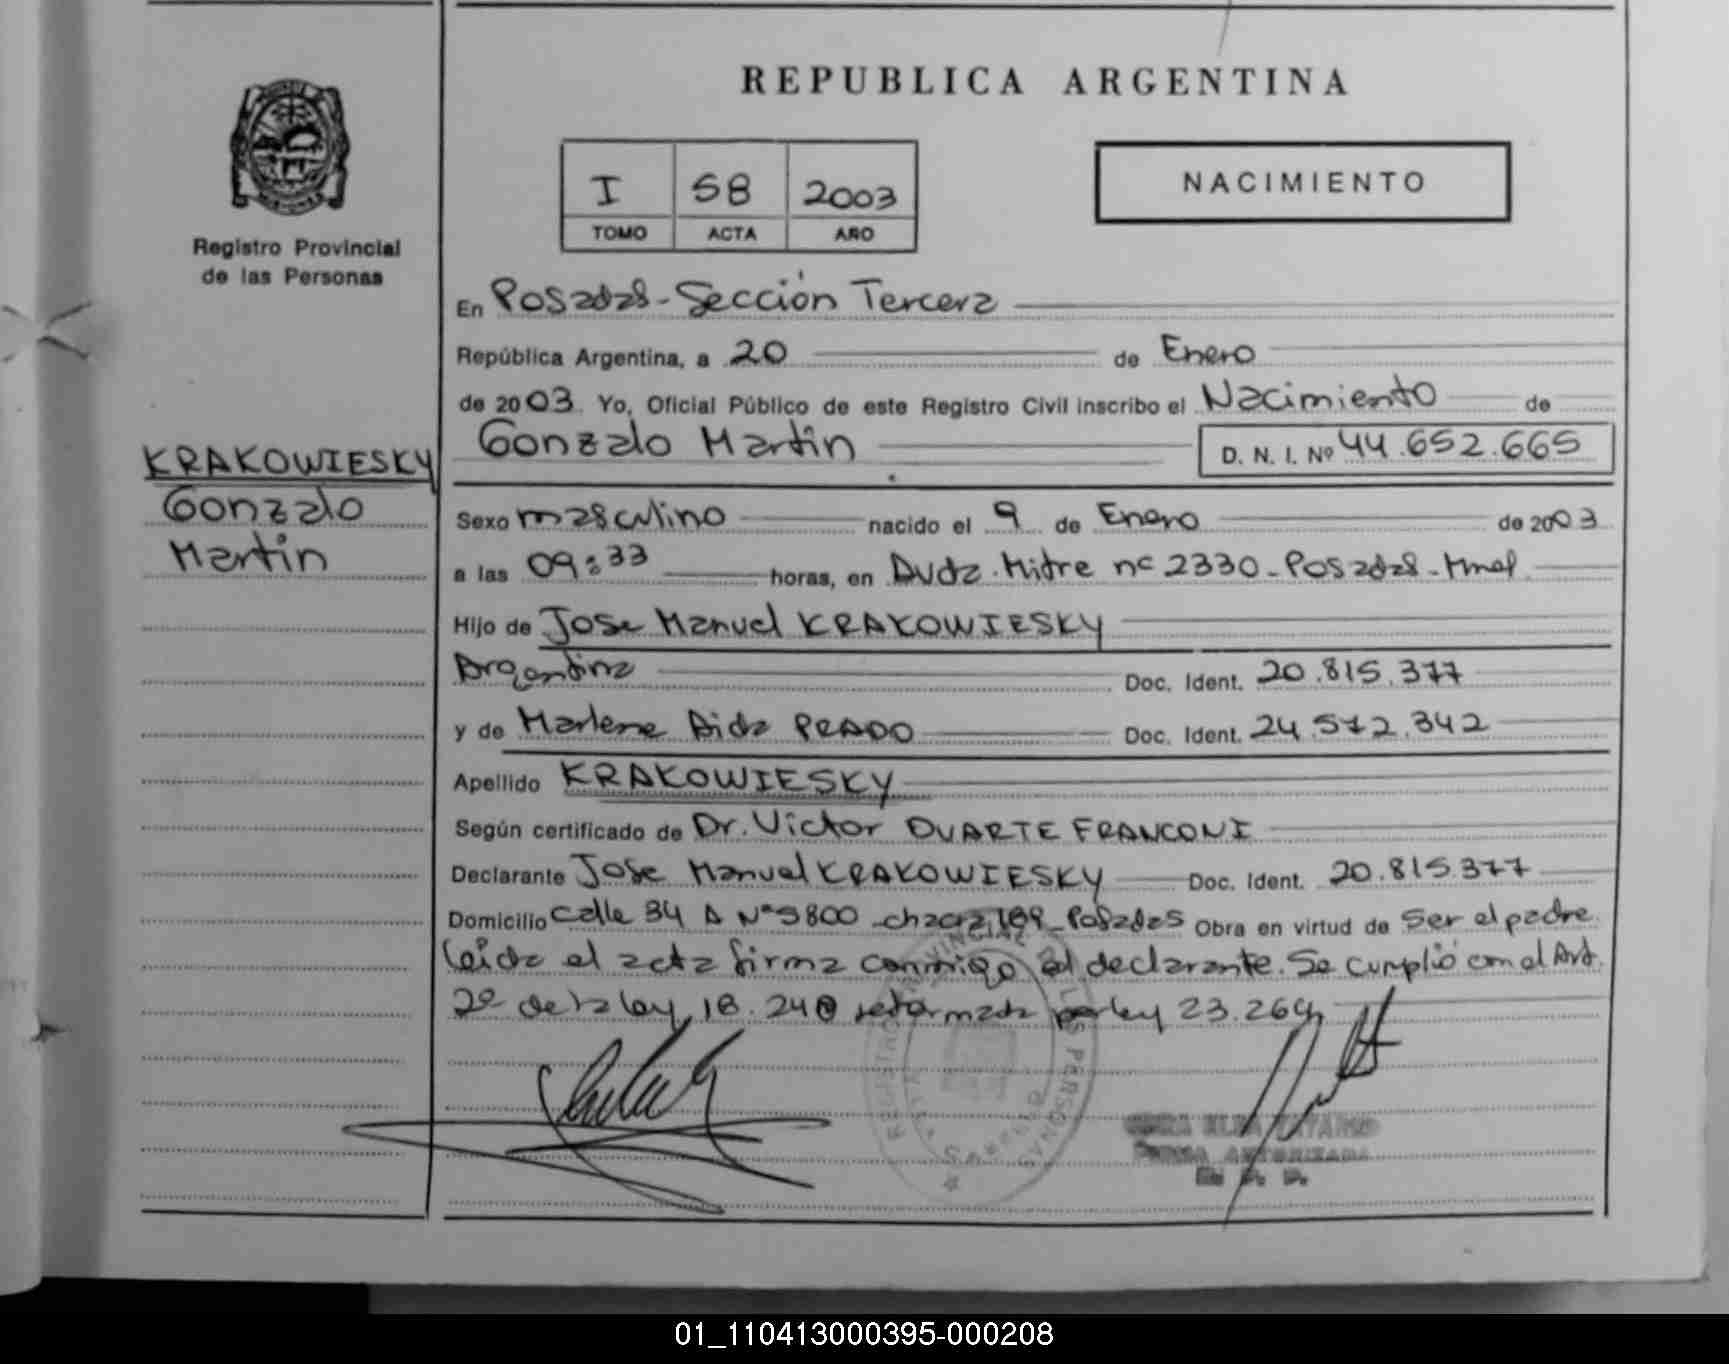 REPUBLICA ARGENTINA
I 58 2003
TOMO ACTA AÑO
NACIMIENTO
Registro Provincial
de las Personas
En Posadas - Sección Tercera
República Argentina, a 20 de Enero
de 2003. Yo, Oficial Público de este Registro Civil inscribo el Nacimiento de
Gonzalo Martin D. N. I. Nº 44.652.665
KRAKOWIESKY
Gonzalo
Martin
Sexo masculino nacido el 9 de Enero de 2003
a las 09:33 horas, en Avda. Mitre nº 2330 - Posadas - Mnes.
Hijo de Jose Manuel KRAKOWIESKY
Argentina Doc. Ident. 20.815.377
y de Marlene Aida PRADO Doc. Ident. 24.572.342
Apellido KRAKOWIESKY
Según certificado de Dr. Victor DUARTE FRANCONI
Declarante Jose Manuel KRAKOWIESKY Doc. Ident. 20.815.377
Domicilio calle 34 A Nº 5800 - chacra 189 - Posadas Obra en virtud de ser el padre.
Leida el acta firma conmigo el declarante. Se cumplió con el Art.
2º de la ley 18.248 reformada por ley 23.264
REGISTRO PROVINCIAL DE LAS PERSONAS
01_110413000395-000208